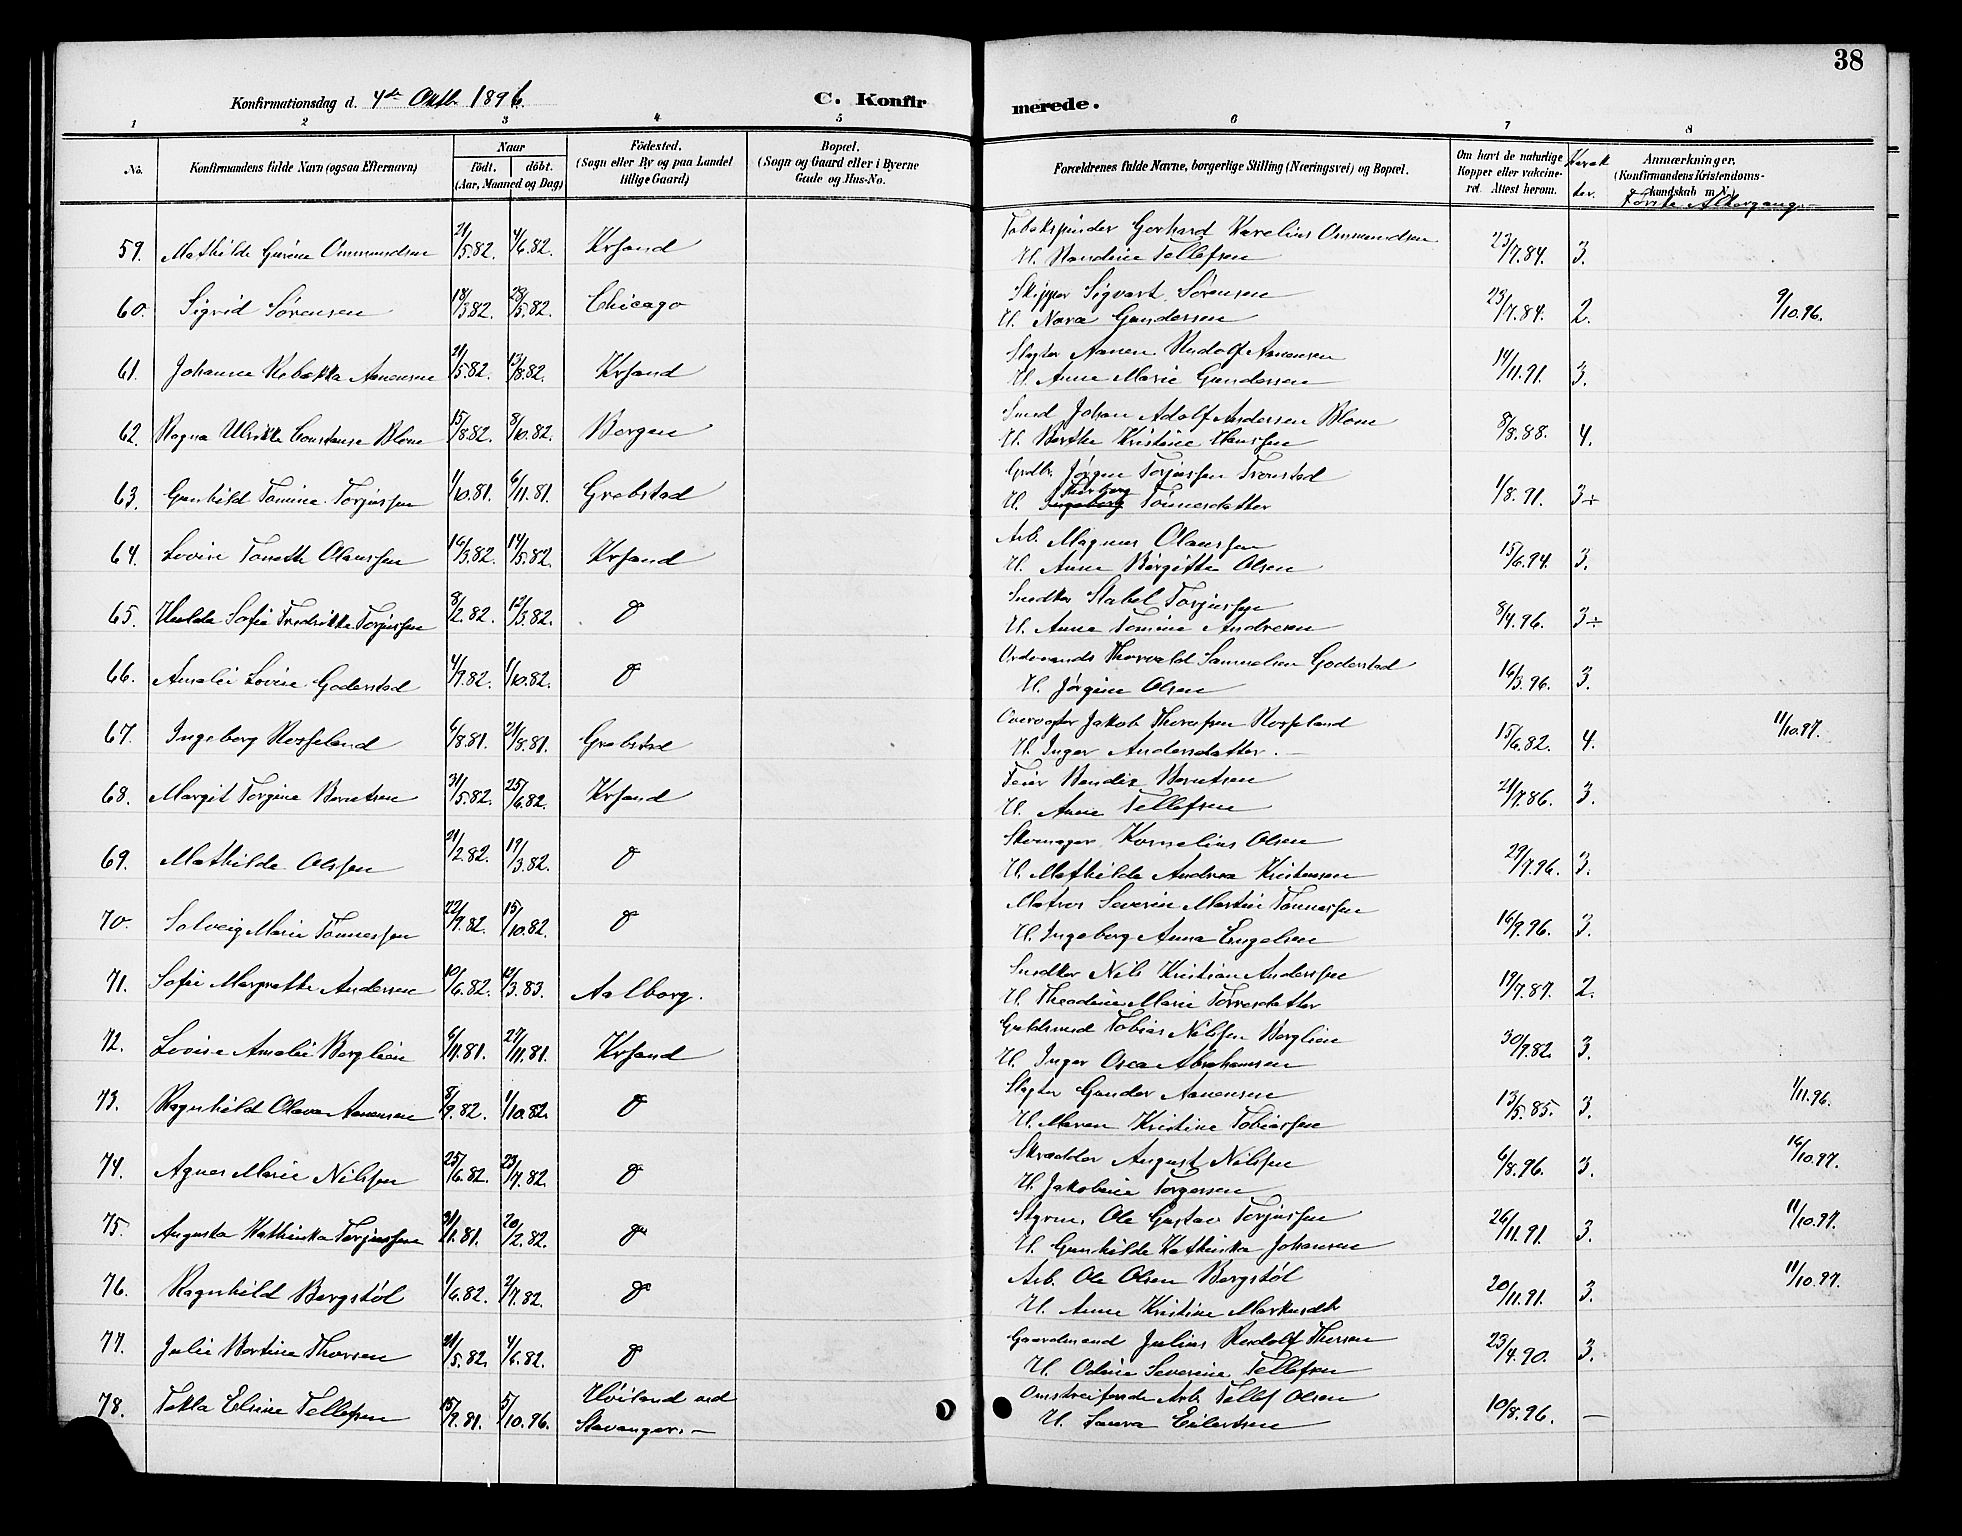 38
Konfirmationsdag d. 4de Oktb. 1896. C. Konfirmerede.
1 2 3 4 5 6 7 8
No. Konfirmandens fulde Navn (ogsaa Efternavn) Naar født. døbt. (Aar, Maaned og Dag) Fødested. (Sogn eller By og paa Landet tillige Gaard) Bopæl. (Sogn og Gaard eller i Byerne Gade og Hus-No. Forældrenes fulde Navne, borgerlige Stilling (Næringsvei) og Bopæl. Om havt de naturlige Kopper eller vaccineret. Attest herom. Karakter. Anmærkninger. (Konfirmandens Kristendomskundskab m.V.) Første Altergang.
59. Mathilde Gurine Ommundsen 21/5.82. 4/6.82. Krsand Tobakspinder Gerhard Karelius Ommundsen 23/7.84. 3.
H. Nandine Tellefsen
60. Sigrid Sørensen 18/3.82. 28/5.82. Chicago Skipper Sigvart Sørensen 23/7.84. 2. 9/10.96.
H. Nora Gundersen
61. Johanne Rebekka Aanensen 21/5.82. 13/8.82. Krsand Slagter Aanen Rudolf Aanensen 14/11.91. 3.
H. Anne Marie Gundersen
62. Ragna Ulrikke Constanse Blom 15/8.82. 8/10.82. Bergen Smed Johan Adolf Andersen Blom 8/8.88. 4.
H. Berthe Kristine Hanssen
63. Gunhild Tomine Torjussen 1/10.81. 6/11.81. Grebstad Grdbr. Jørgen Torjussen Tronstad 1/8.91. 3÷
H. Thorborg Tønnesdatter
64. Lovise Tonette Olaussen 16/3.82. 14/5.82. Krsand Arb. Magnus Olaussen 15/6.94. 3.
H. Anne Birgitte Olsen
65. Hulda Sofie Fredrikke Torjussen 8/2.82. 12/3.82. do Snedker Stahel Torjussen 8/4.96. 3÷
H. Anne Tomine Andresen
66. Amalie Lovise Goderstad 4/9.82. 1/10.82. do Thorvald Samuelsen Goderstad 16/3.96. 3.
H. Jørgine Olsen
67. Ingeborg Rosseland 6/8.81. 21/8.81. Grebstad Jakob Thoressen Rosseland 15/6.82. 4. 11/10.97.
H. Inger Andersdatter.
68. Margit Torgine Berntsen 31/5.82. 25/6.82. Krsand Feier Bendix Berntsen 21/7.86. 3.
H. Anne Tellefsen
69. Mathilde Olssen 21/2.82. 19/3.82. do Skomager Kornelius Olsen 29/7.96. 3.
H. Mathilde Andrea Kristensen
70. Solveig Marie Tønnessen 22/9.82. 15/10.82. do Matros Severin Martin Tønnessen 16/9.96. 3.
H. Ingeborg Anna Engelsen
71. Sofie Margrethe Andersen 10/6.82. 12/3.83. Aalborg. Snedker Nils Kristian Anderssen 19/7.87. 2.
H. Theodine Marie Torresdatter
72. Lovise Amalie Berglien 6/11.81. 27/11.81. Krsand Guldsmed Tobias Nilssen Berglien 30/9.82. 3.
H. Inger Osea Abrahamsen
73. Ragnhild Olava Aanensen 8/9.82. 1/10.82. do Slagter Gunder Aanensen 13/5.85. 3. 1/11.96.
H. Maren Kristine Tobiassen
74. Agnes Marie Nilssen 25/6.82. 23/7.82. do Skrædder August Nilssen 6/8.96. 3. 16/10.97.
H. Jakobine Torgersen
75. Augusta Kathinka Torjussen 31/11.81. 20/2.82. do Styrm. Ole Gustav Torjussen 26/11.91. 3. 11/10.97.
H. Gunhilde Kathinka Johansen
76. Ragnhild Bergstøl 1/6.82. 2/7.82. do Arb. Ole Olsen Bergstøl 20/11.91. 3. 11/10.97.
H. Anne Kristine Markusdtr
77. Julie Bertine Thorsen 21/5.82. 4/6.82. do Gaardmand Julius Rudolf Thorsen 23/4.90. 3.
H. Odine Severine Tellefsen
78. Tekla Elsine Tellefsen 15/9.81. 5/10.96. Høiland ved Stavanger. Omstreifende Arb. Tellef Olsen 10/8.96. —
H. Laura Eilertsen